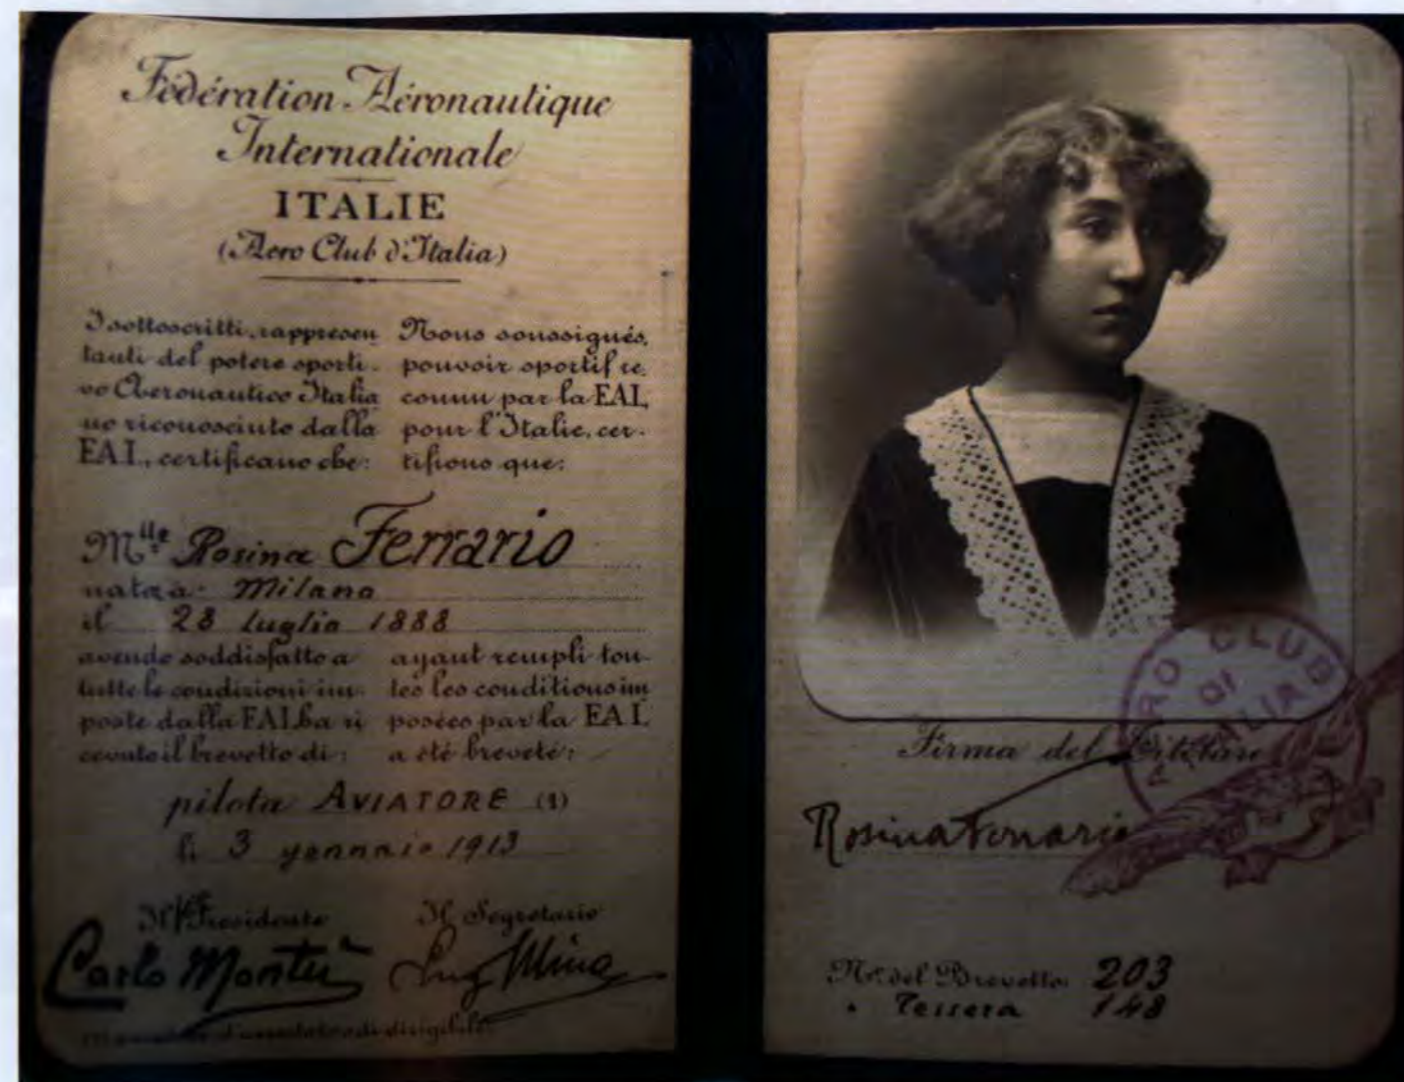 Fédération Aéronautique
Internationale
ITALIE
(Aero Club d'Italia)
I sottoscritti, rappresen
tanti del potere sporti-
vo Aeronautico Italia
no riconosciuto dalla
F.A.I., certificano che:
Nous soussignés,
pouvoir sportif re.
connu par la F.A.I.,
pour l'Italie, cer-
tifions que:
Mlle Rosina Ferrario
nata a: Milano
il 28 luglio 1888
avendo soddisfatto a
tutte le condizioni im-
poste dalla F.A.I. ha ri
cevuto il brevetto di:
ayant rempli tou-
tes les conditions im
posées par la F.A.I.
a été breveté:
pilota AVIATORE (1)
li 3 gennaio 1913
Il Presidente
Carlo Montù
Il Segretario
Mina
di dirigibile
AERO CLUB
DI
ITALIA
Firma del Titolare
Rosina Ferrario
No. del Brevetto 203
" Tessera 148